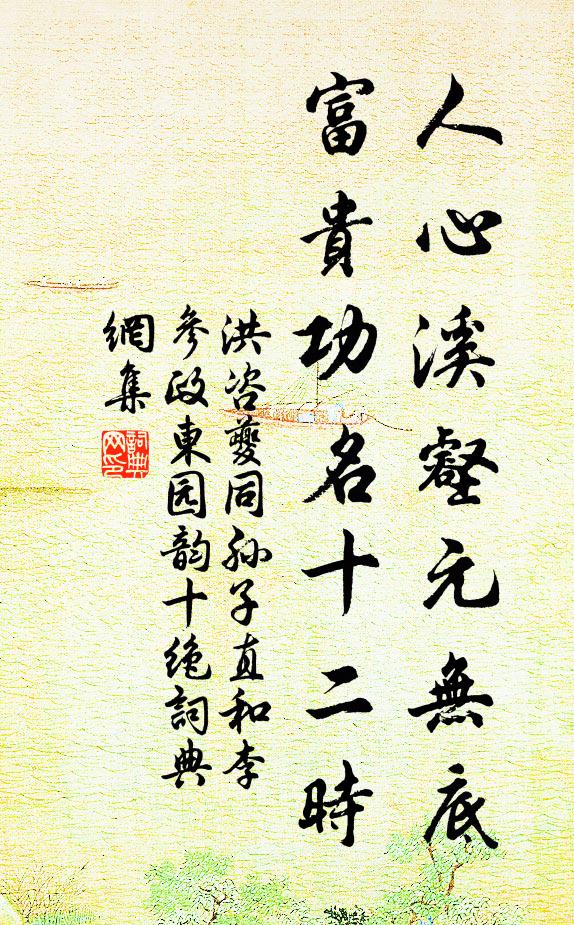 人心溪壑元無底
富貴功名十二時
洪咨夔同孙子直和李
參政東园韵十绝詞典
網集
詞典
网印